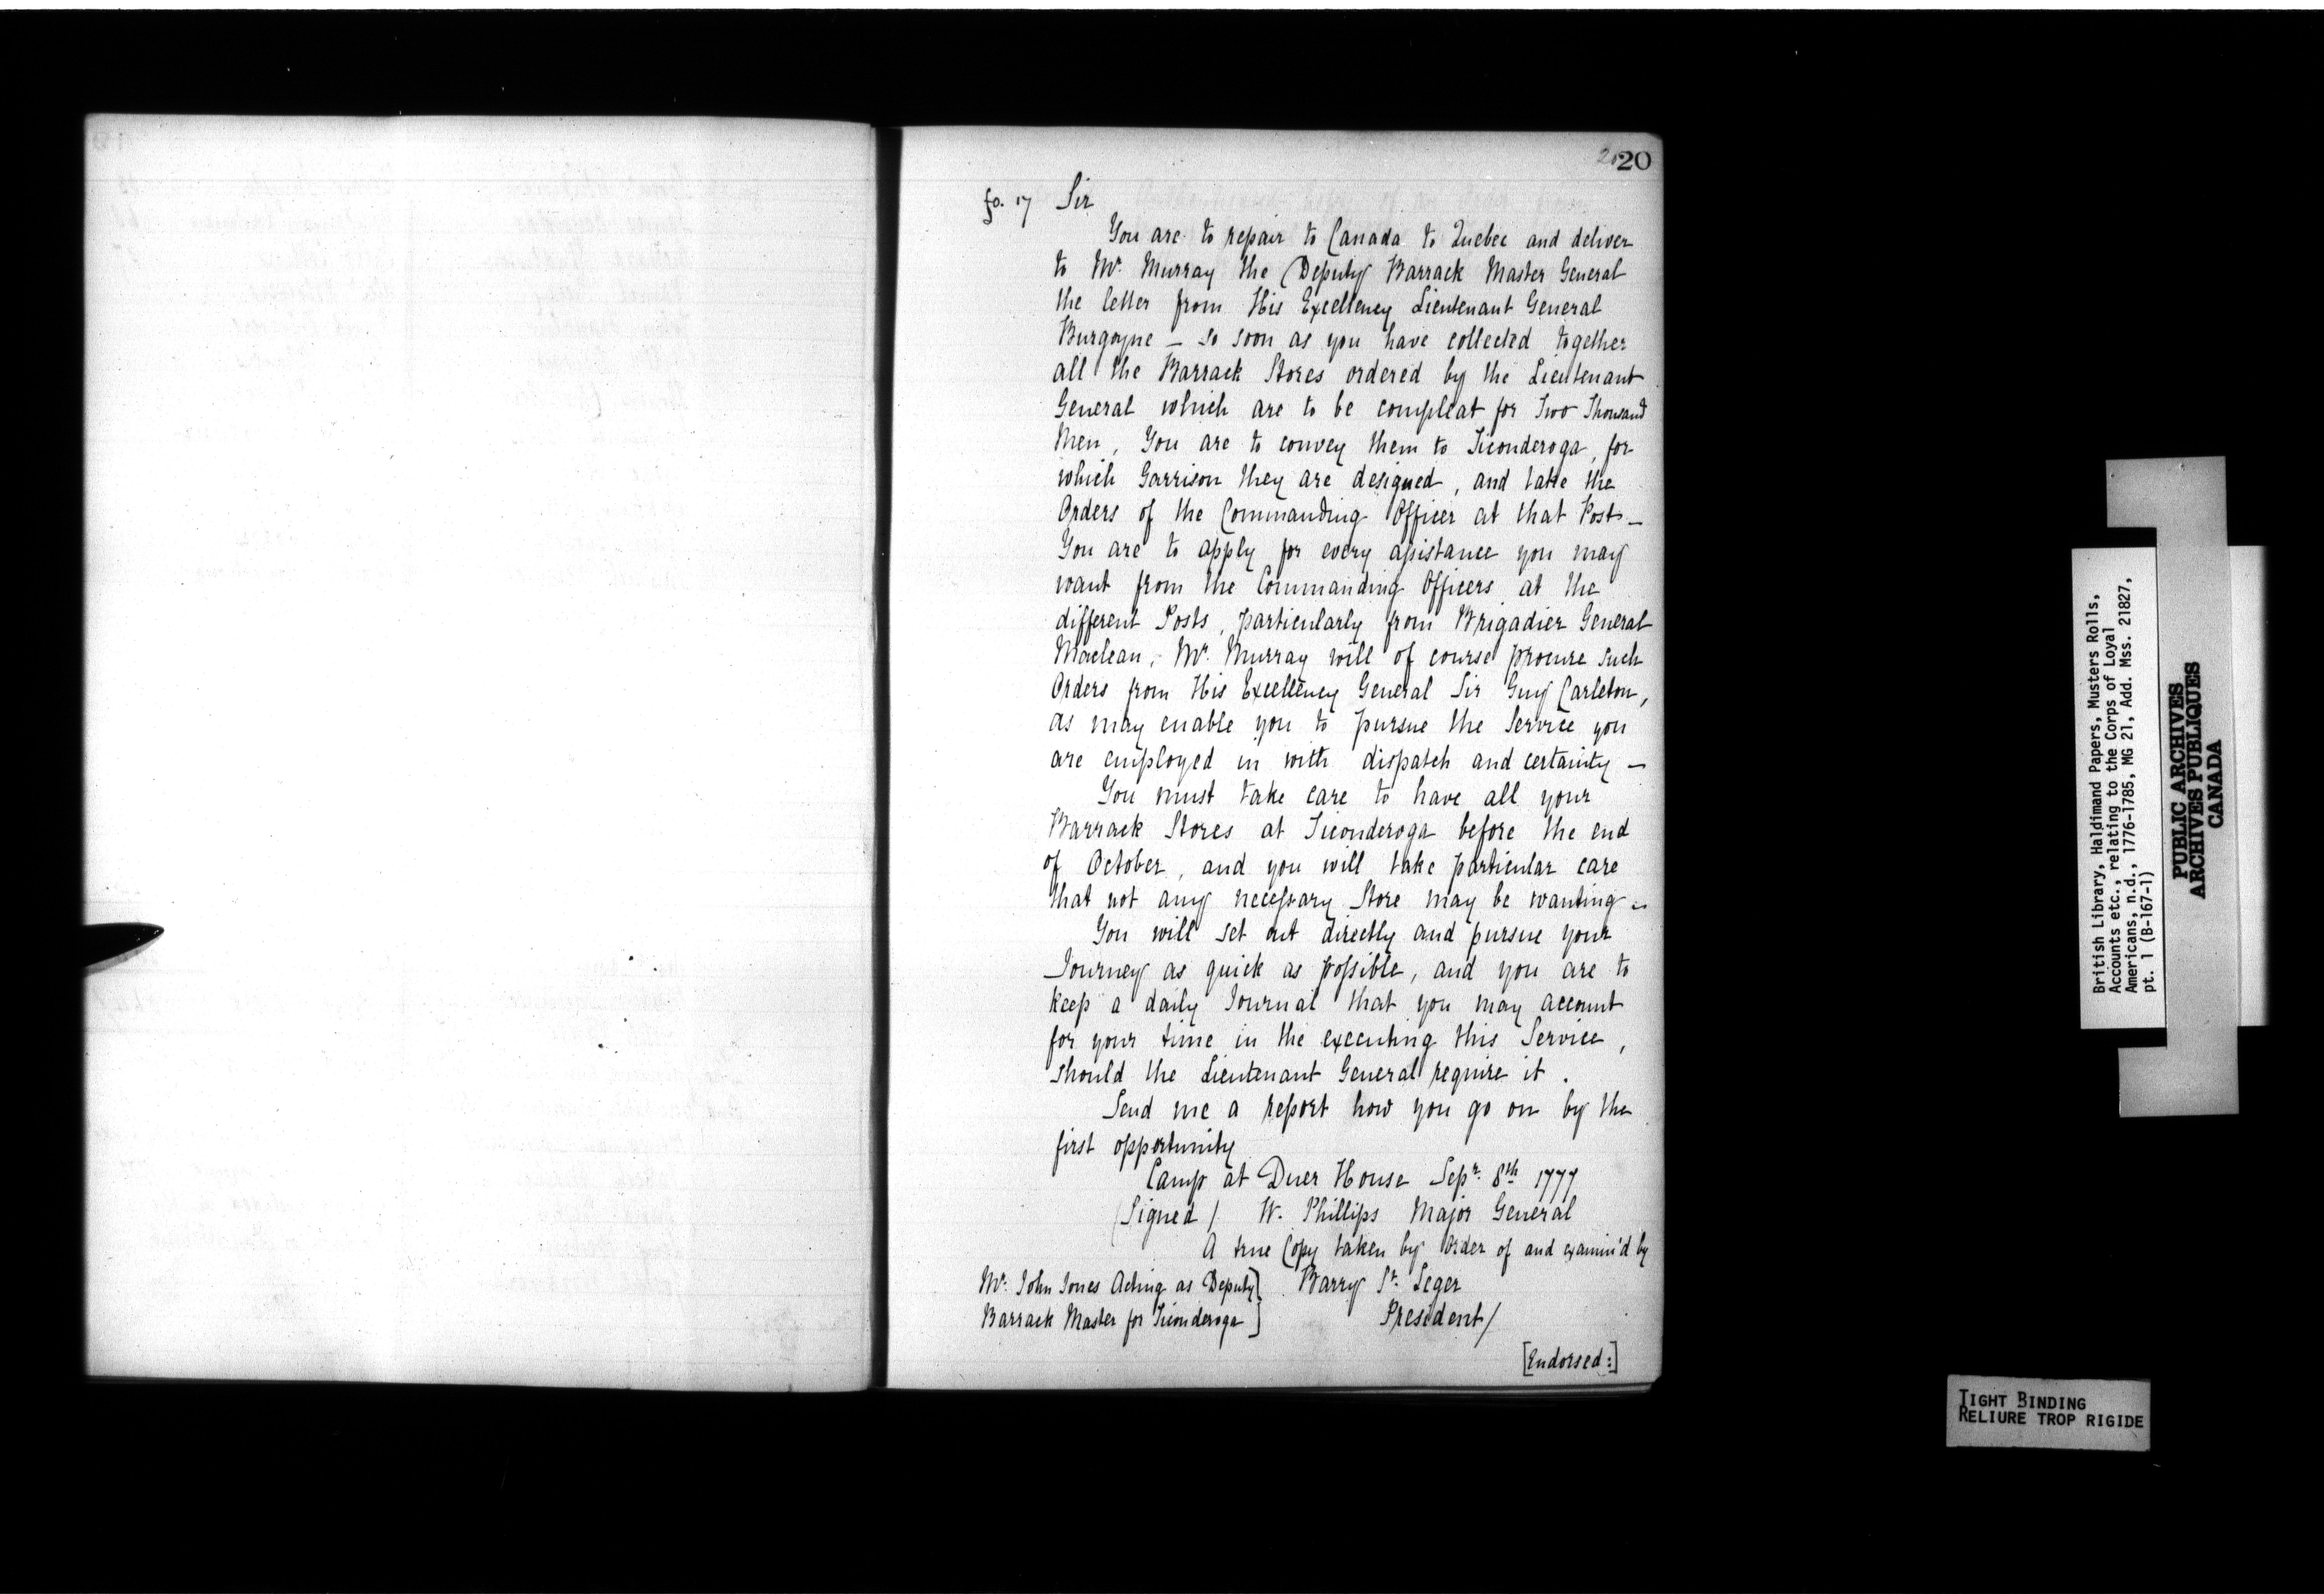 20
fo. 17 Sir
You are to repair to Canada to Quebec and deliver
to Mr. Murray the Deputy Barrack Master General
the letter from His Excellency Lieutenant General
Burgoyne — so soon as you have collected together
all the Barrack Stores ordered by the Lieutenant
General which are to be compleat for Two Thousand
Men, You are to convey them to Ticonderoga, for
which Garrison they are designed, and take the
Orders of the Commanding Officer at that Post —
You are to apply for every assistance you may
want from the Commanding Officers at the
different Posts, particularly from Brigadier General
Maclean, Mr. Murray will of course procure such
Orders from His Excellency General Sir Guy Carleton,
as may enable you to pursue the Service you
are employed in with dispatch and certainty —
You must take care to have all your
Barrack Stores at Ticonderoga before the end
of October, and you will take particular care
that not any necessary Store may be wanting —
You will set out directly and pursue your
Journey as quick as possible, and you are to
keep a daily Journal that you may account
for your time in the executing this Service,
should the Lieutenant General require it.
Send me a report how you go on by the
first opportunity
Camp at Duer House Sepr. 8th 1777
(Signed) W. Phillips Major General
A true Copy taken by Order of and examin'd by
Mr. John Jones Acting as Deputy] Barry St. Leger
Barrack Master for Ticonderoga] President/
[Endorsed:]
British Library, Haldimand Papers, Musters Rolls,
Accounts etc., relating to the Corps of Loyal
Americans, n.d., 1776-1785, MG 21, Add. Mss. 21827,
pt. 1 (B-167-1)
PUBLIC ARCHIVES
ARCHIVES PUBLIQUES
CANADA
TIGHT BINDING
RELIURE TROP RIGIDE